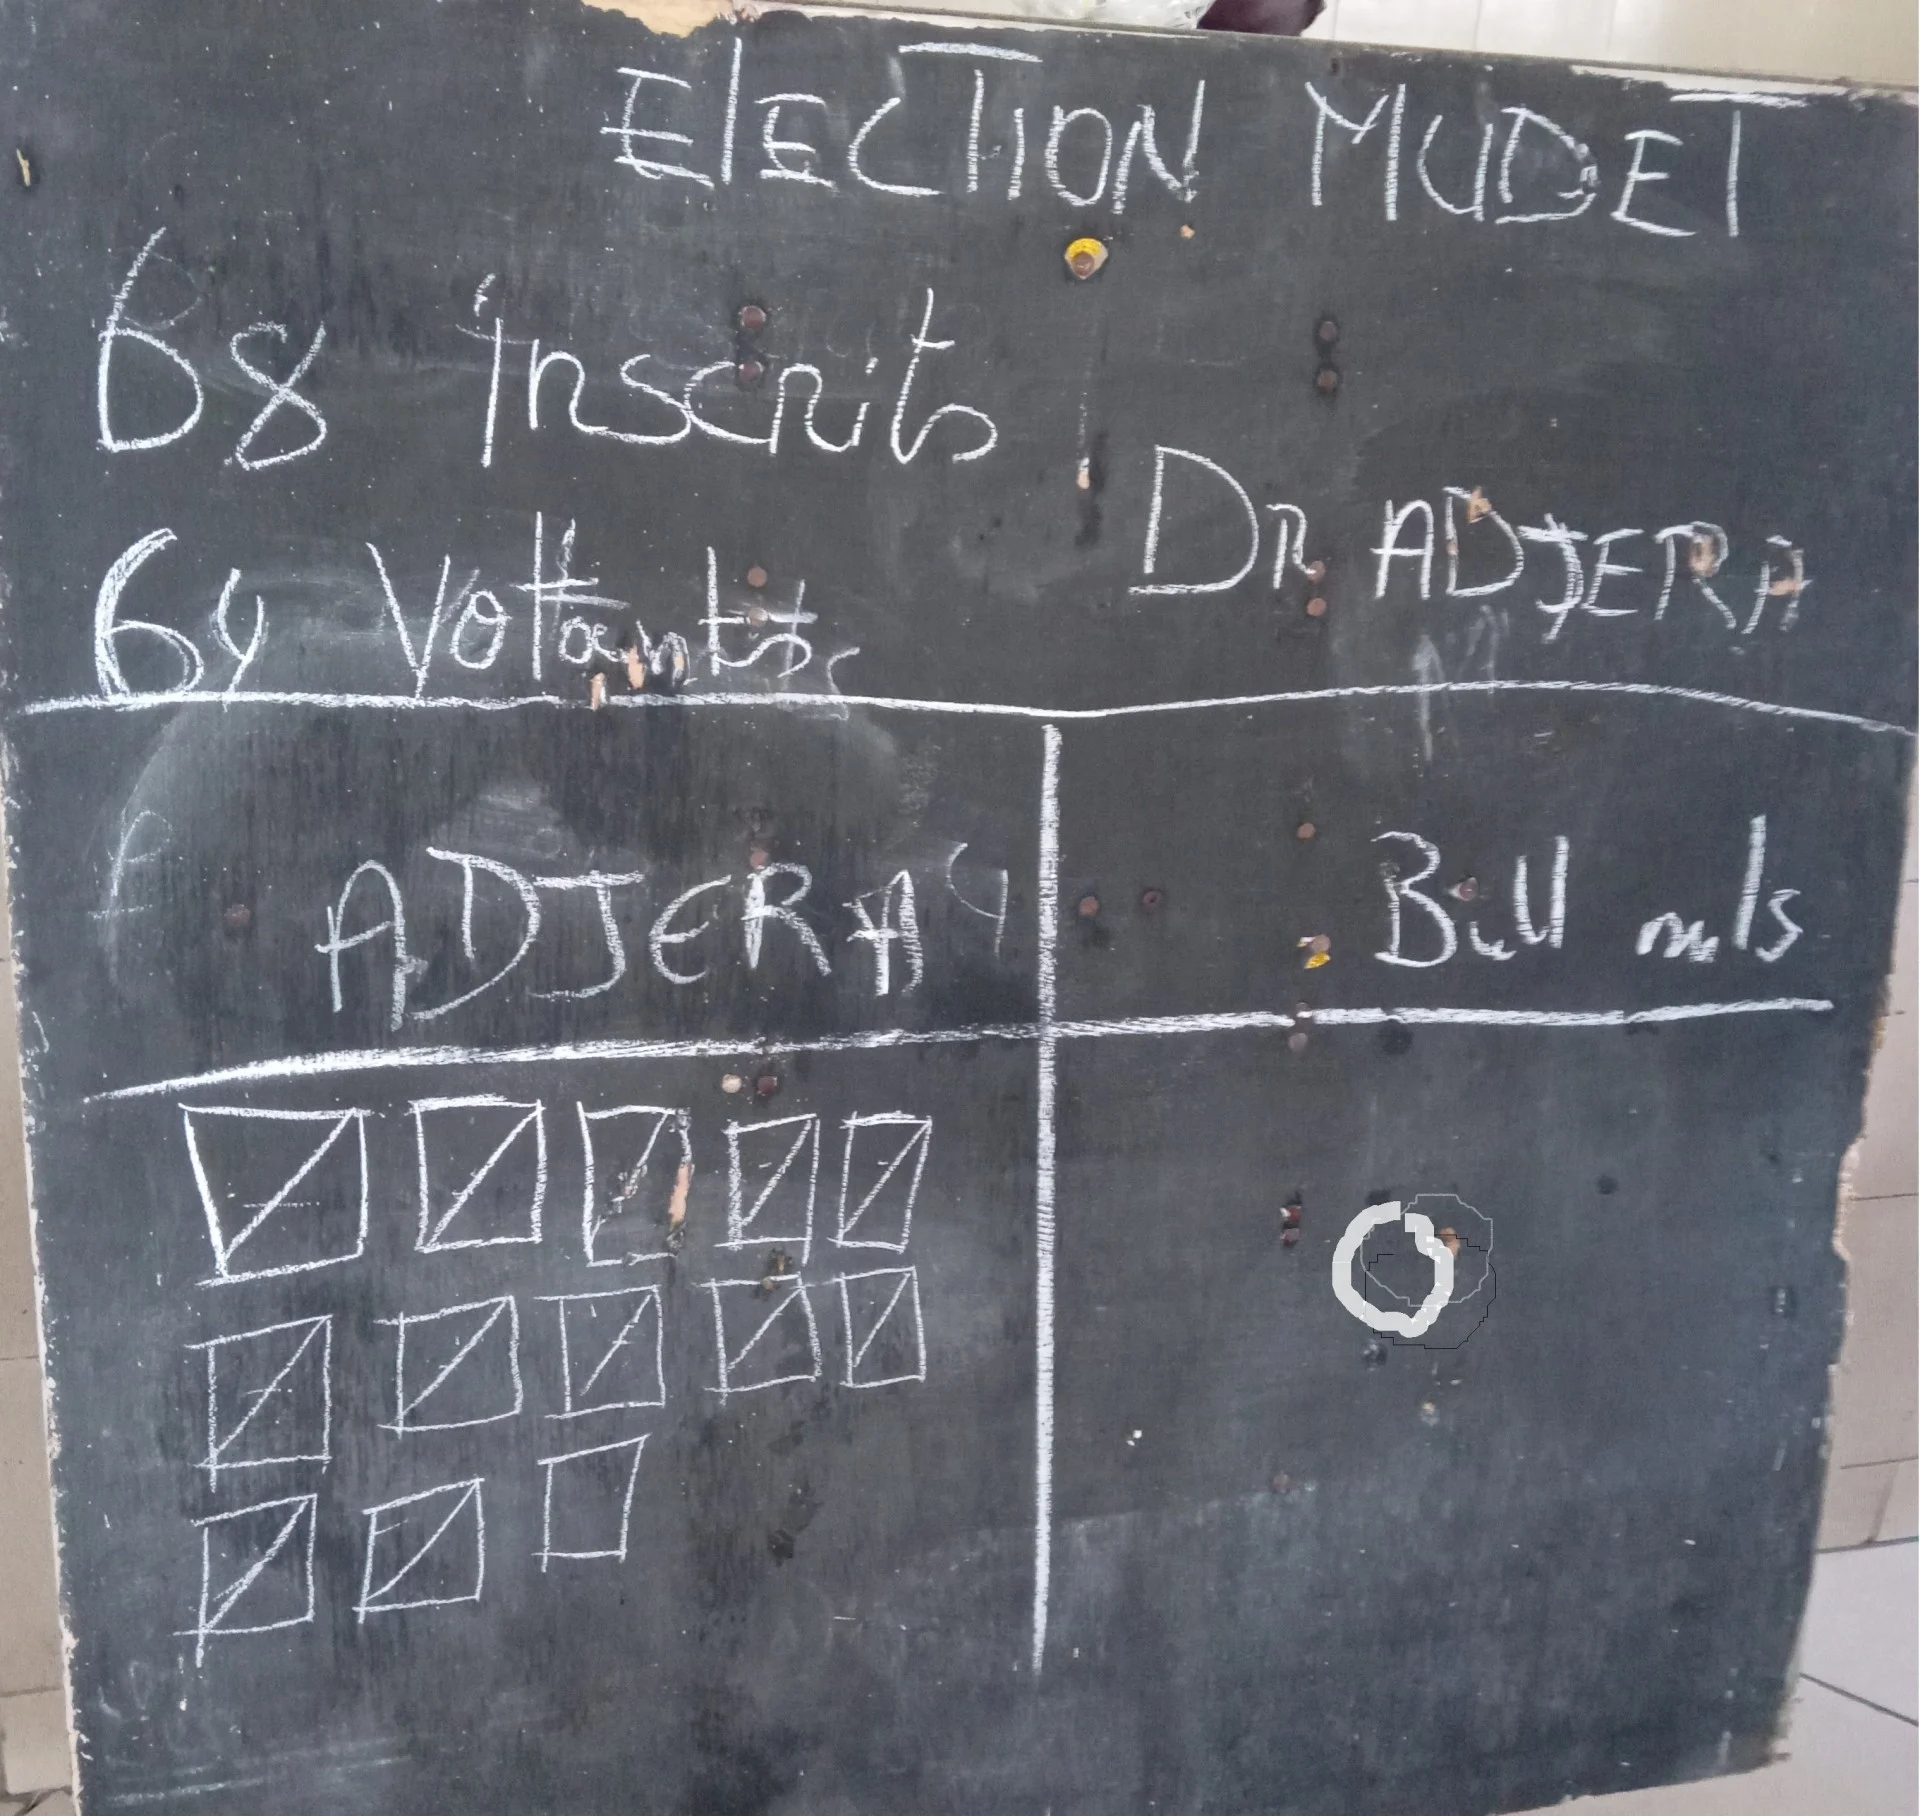 ElECTION MUDET
68 inscrits
64 Votants
Dr ADJERA
ADJERA
Bull nuls
0